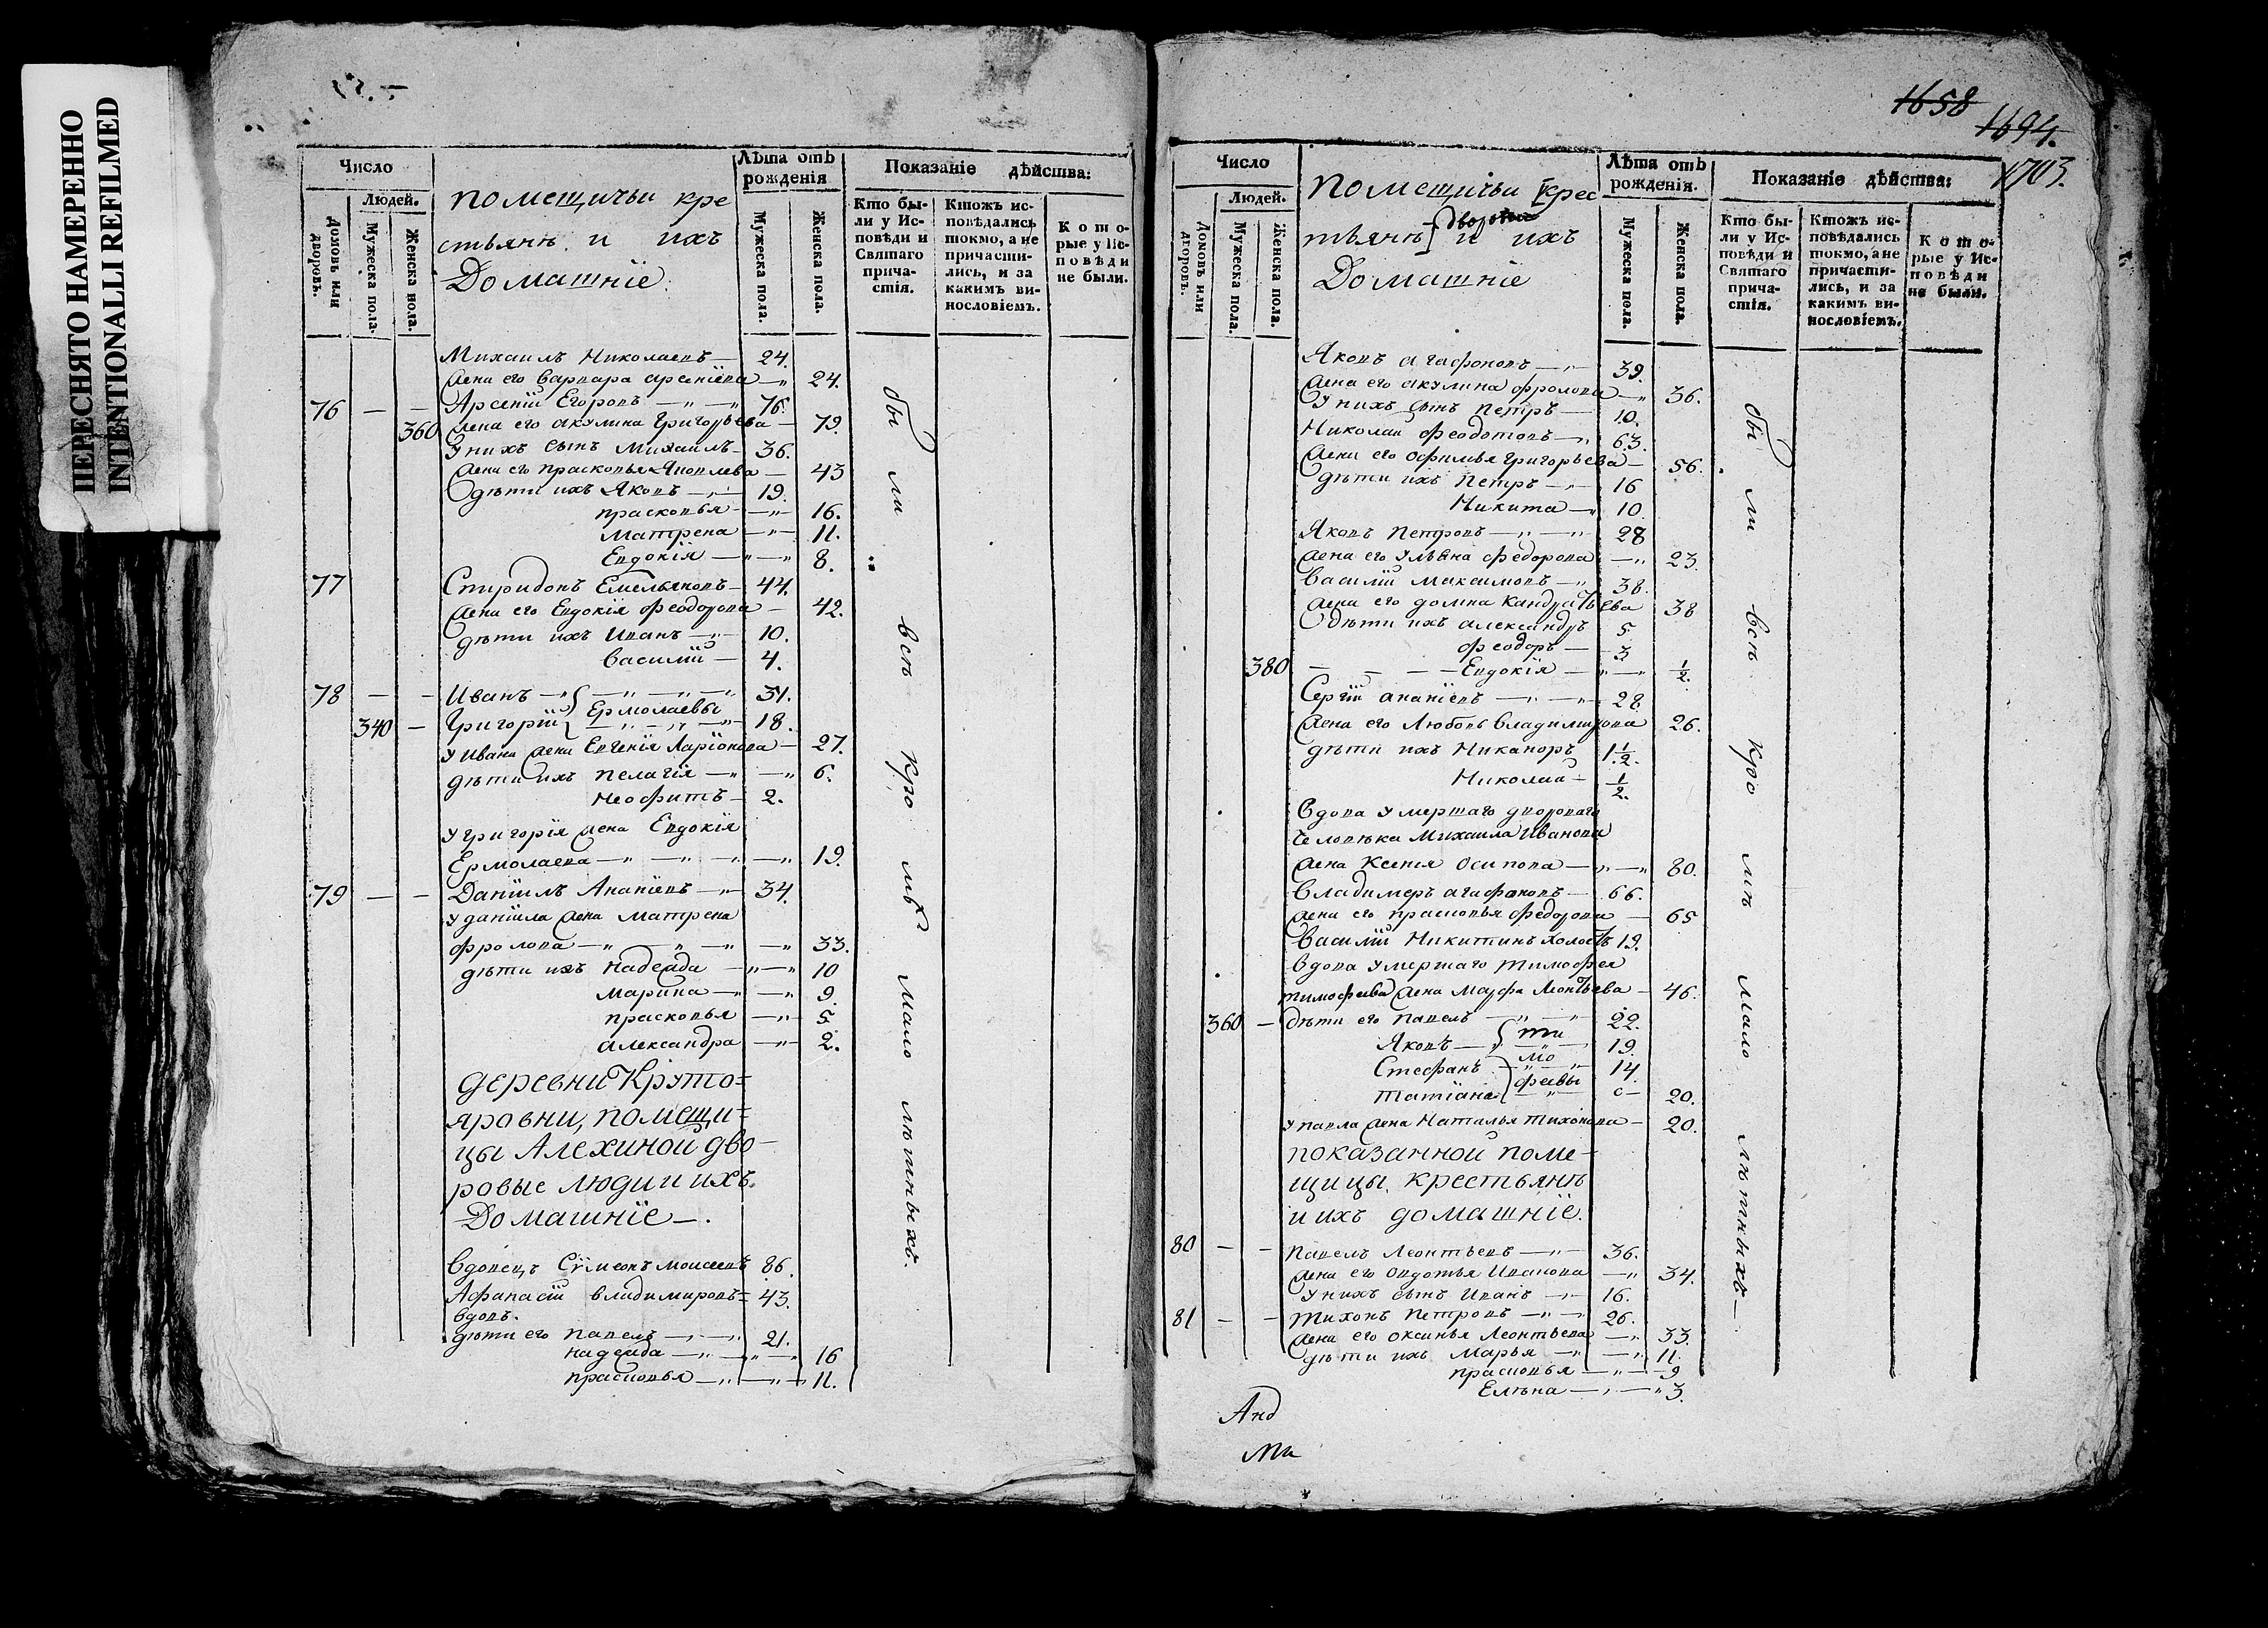 ПЕРЕСНЯТО НАМЕРЕННО
INTENTIONALLI REFILMED
Число
Людей.
Домовъ или дворовъ.
Мужеска пола.
Женска пола.
помещичьи кре
стьянъ и ихъ
Домашніе
Лѣта отъ рожденія
Мужеска пола.
Женска пола.
Показаніе дѣйства:
Кто бы-
ли у Ис-
повѣди и
Святаго
прича-
стія.
Ктожъ ис-
повѣдались
токмо, а не
причасти-
лись, и за
какимъ ви-
нословіемъ.
Кото-
рые у Ис-
повѣди
не были.
Михаилъ Николаевъ — 24.
жена его варвара арсеніева — 24.
76 — — Арсеній Егоровъ — 76.
360 жена его акулина Григорьева — 79.
у нихъ сынъ Михаилъ — 36.
жена его прасковья — 43
дѣти ихъ Яковъ — 19.
прасковья — 16.
Матрена — 11.
Евдокія — 8.
77 Спиридонъ Емельяновъ — 44.
жена его Евдокія феодорова — 42.
дѣти ихъ Иванъ — 10.
василій — 4.
78 — — Иванъ — 31.
Ермолаевы
340 — Григорій — 18.
у Ивана жена Евгенія Ларіонова — 27.
дѣти ихъ пелагія — 6.
неофитъ — 2.
у григорія жена Евдокія
Ермолаева — 19.
79 — — Даніилъ Ананіевъ — 34.
у даніила жена матрена
фролова — 33.
дѣти ихъ надежда — 10
марина — 9.
прасковья — 5
александра — 2.
деревни Круто=
яровни, помещи=
цы Алехиной дво-
ровые люди и ихъ
Домашніе —.
вдовецъ Сумеонъ моисеевъ 86.
Афанасій владимировъ = 43.
вдовъ.
дѣти его павелъ — 21.
надежда — 16
прасковья — 11.
были всѣ кромѣ мало лѣтныхъ.
1658
1694.
1703.
Число
Людей.
Домовъ или дворовъ.
Мужеска пола.
Женска пола.
помещичьи [крес
тьянъ] и ихъ
Домашніе
Лѣта отъ рожденія.
Мужеска пола.
Женска пола.
Показаніе дѣйства:
Кто бы-
ли у Ис-
повѣди и
Святаго
прича-
стія.
Ктожъ ис-
повѣдались
токмо, а не
причасти-
лись, и за
какимъ ви-
нословіемъ.
Кото-
рые у Ис-
повѣди
не были.
Яковъ агафоновъ — 39.
жена его акулина фролова — 36.
у нихъ сынъ петръ — 10.
Николай феодотовъ — 63.
жена его офимья григорьева — 56.
дѣти ихъ петръ — 16
Никита — 10.
Яковъ петровъ — 28
жена его ульяна федорова — 23.
василій максимовъ — 38.
жена его домна кандратьева 38
дѣти ихъ александръ 5
феодоръ — 3
380 — — — Евдокія — 1/2.
Сергій ананіевъ — 28
жена его Любовь владимирова 26.
дѣти ихъ Никаноръ 1 1/2.
Николай — 1/2.
вдова умершаго двороваго
человѣка михаила Иванова
жена Ксенія осипова — 80.
владимеръ агафоновъ — 66.
жена его прасковья федорова — 65
василій Никитинъ холостъ 19.
вдова умершаго тимофея
тимофеева жена марфа Леонтьева — 46.
360 — дѣти его павелъ — 22.
Яковъ — ти 19.
Стефанъ — мо 14
татіана — феевы 20.
у павла жена наталья тихонова — 20.
показанной поме-
щицы крестьянъ
и ихъ домашніе.
80 — — павелъ Леонтьевъ — 36.
жена его овдотья Иванова — 34.
у нихъ сынъ Иванъ — 16.
81 — — тихонъ петровъ — 26.
жена его оксинья Леонтьева — 33.
дѣти ихъ марья — 11.
прасковья — 9
Елѣна — 3.
были всѣ кромѣ мало лѣтныхъ —
Анд
Ми